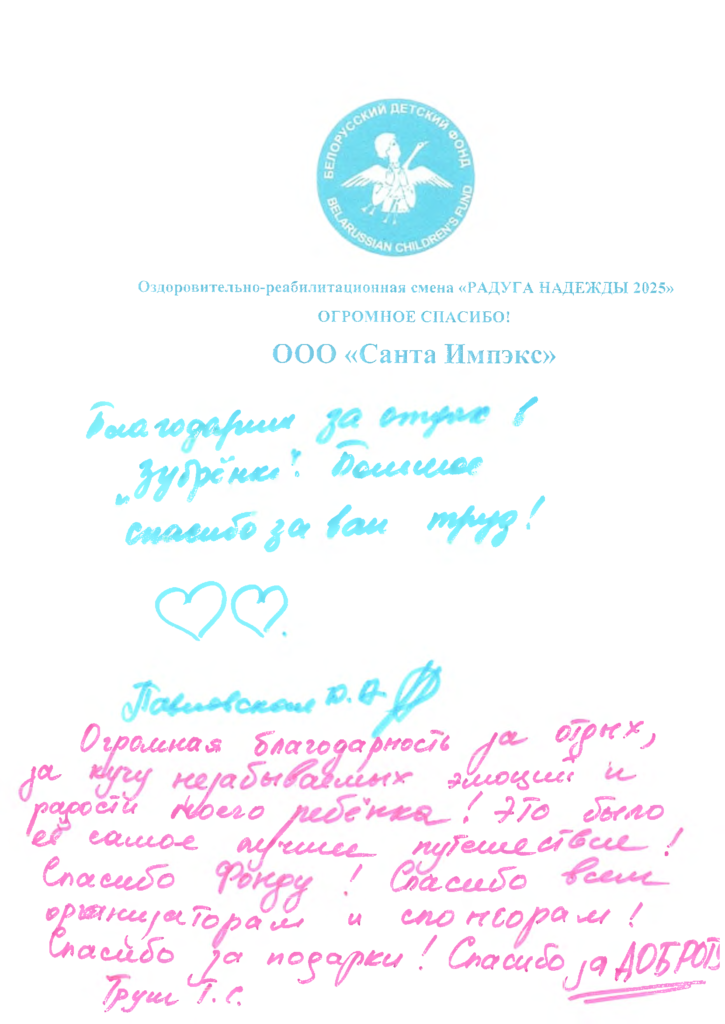 БЕЛОРУССКИЙ ДЕТСКИЙ ФОНД
BELARUSSIAN CHILDREN'S FUND
Оздоровительно-реабилитационная смена «РАДУГА НАДЕЖДЫ 2025»
ОГРОМНОЕ СПАСИБО!
ООО «Санта Импэкс»
Благодарим за отдых в
„Зубрёнке". Большое
спасибо за ваш труд!
Павловская Ю.А.
Огромная благодарность за отдых,
за кучу незабываемых эмоций и
радости моего ребёнка! Это было
её самое лучшее путешествие!
Спасибо Фонду! Спасибо всем
организаторам и спонсорам!
Спасибо за подарки! Спасибо за ДОБРОТУ
Труш Т.С.